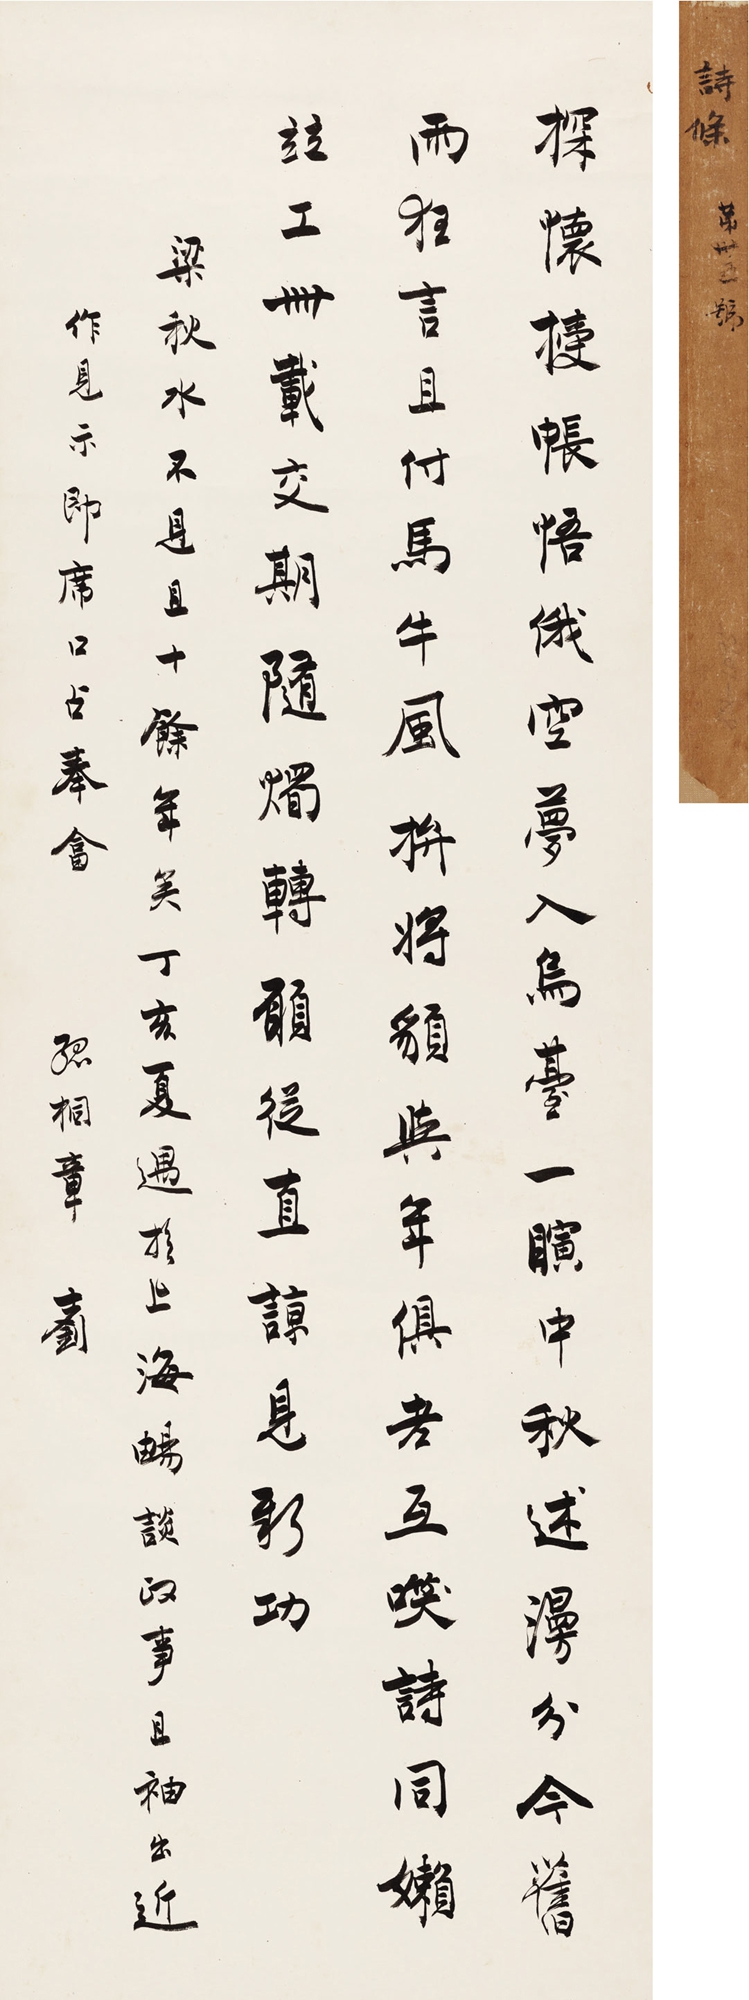 探懷捷帳悟俄空夢入烏臺一瞚中秋述漫分今舊
雨狂言且付馬牛風拚將䫉與年俱老互笑詩同嬾
竝工卌載交期隨燭轉願從直諒見新功
梁秋水不見且十餘年矣丁亥夏遇於上海暢談政事且袖出近
作見示即席口占奉畣 孤桐章士釗
詩條 第卅五號